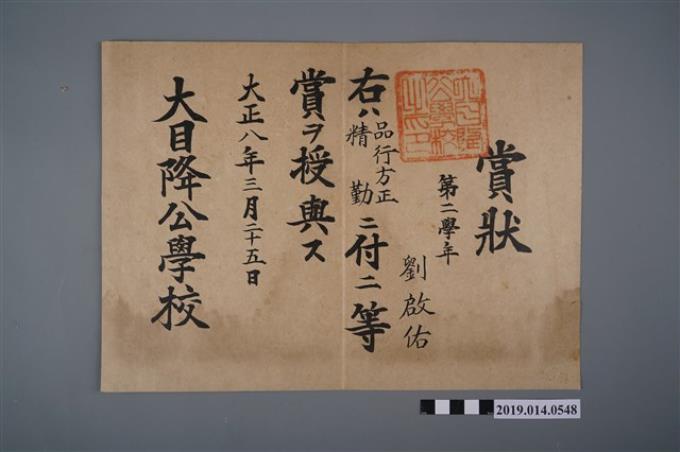 賞狀
第二學年
劉啟佑
右ハ品行方正精勤ニ付二等
賞ヲ授與ス
大正八年三月二十五日
大目降公學校
2019.014.0548